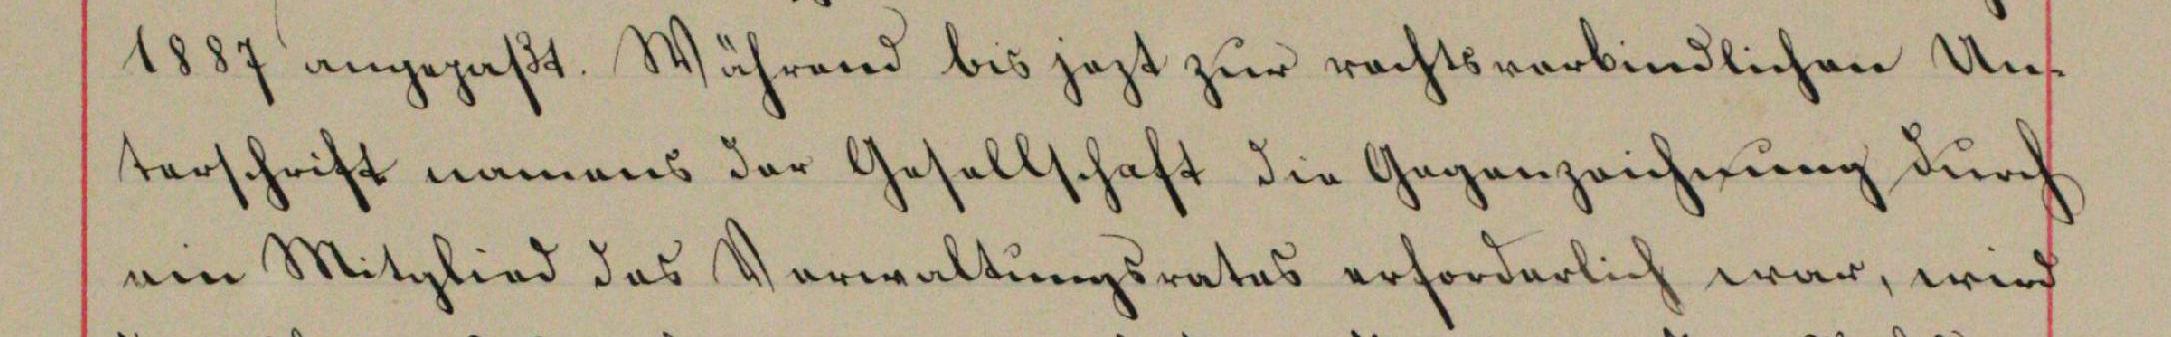 1887 angepaßt. Während bis jezt zur rechtsverbindlichen Un-
terschrift namens der Gesellschaft die Gegenzeichnung durch
ein Mitglied des Verwaltungsrates erforderlich war, wird